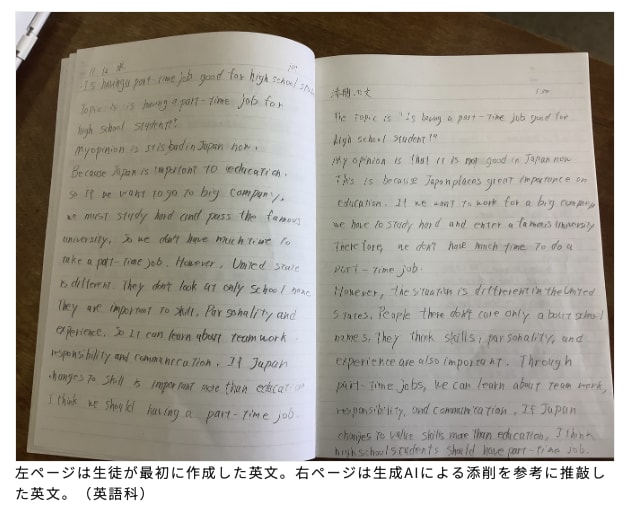 Is having a part-time job good for high school
Topic is is having a part-time job for
high school student?"
My opinion is it is bad in Japan now.
Because Japan is important to education.
So If we want to go to big company,
we must study hard and pass the famous
university. So we don't have much time to
take a part-time job. However, United State
is different. They don't look at only school name
They are important to skill, Parsonality and
experience. So It can learn about team work
responsibility and communication. If Japan
changes to skill is important more than education
I think we should having a part-time job.
添削の文
The topic is "Is having a part-time job good for
high school student?"
My opinion is that it is not good in Japan now
This is because Japan places great importance on
education. If we want to work for a big company
we have to study hard and enter a famous university
Therefore, we don't have much time to do a
part-time job.
However, the situation is different in the United
States. People there don't care only about school
names. They think skills, parsonality, and
experience are also important. Through
part-time jobs, we can learn about team work,
responsibility, and communication. If Japan
changes to value skills more than education, I think
high school students should have part-time job.
左ページは生徒が最初に作成した英文。右ページは生成AIによる添削を参考に推敲し
た英文。（英語科）